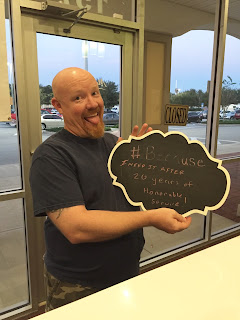 CLOSED
#Because
I MERIT AFTER
20 years of
Honorable
Service!